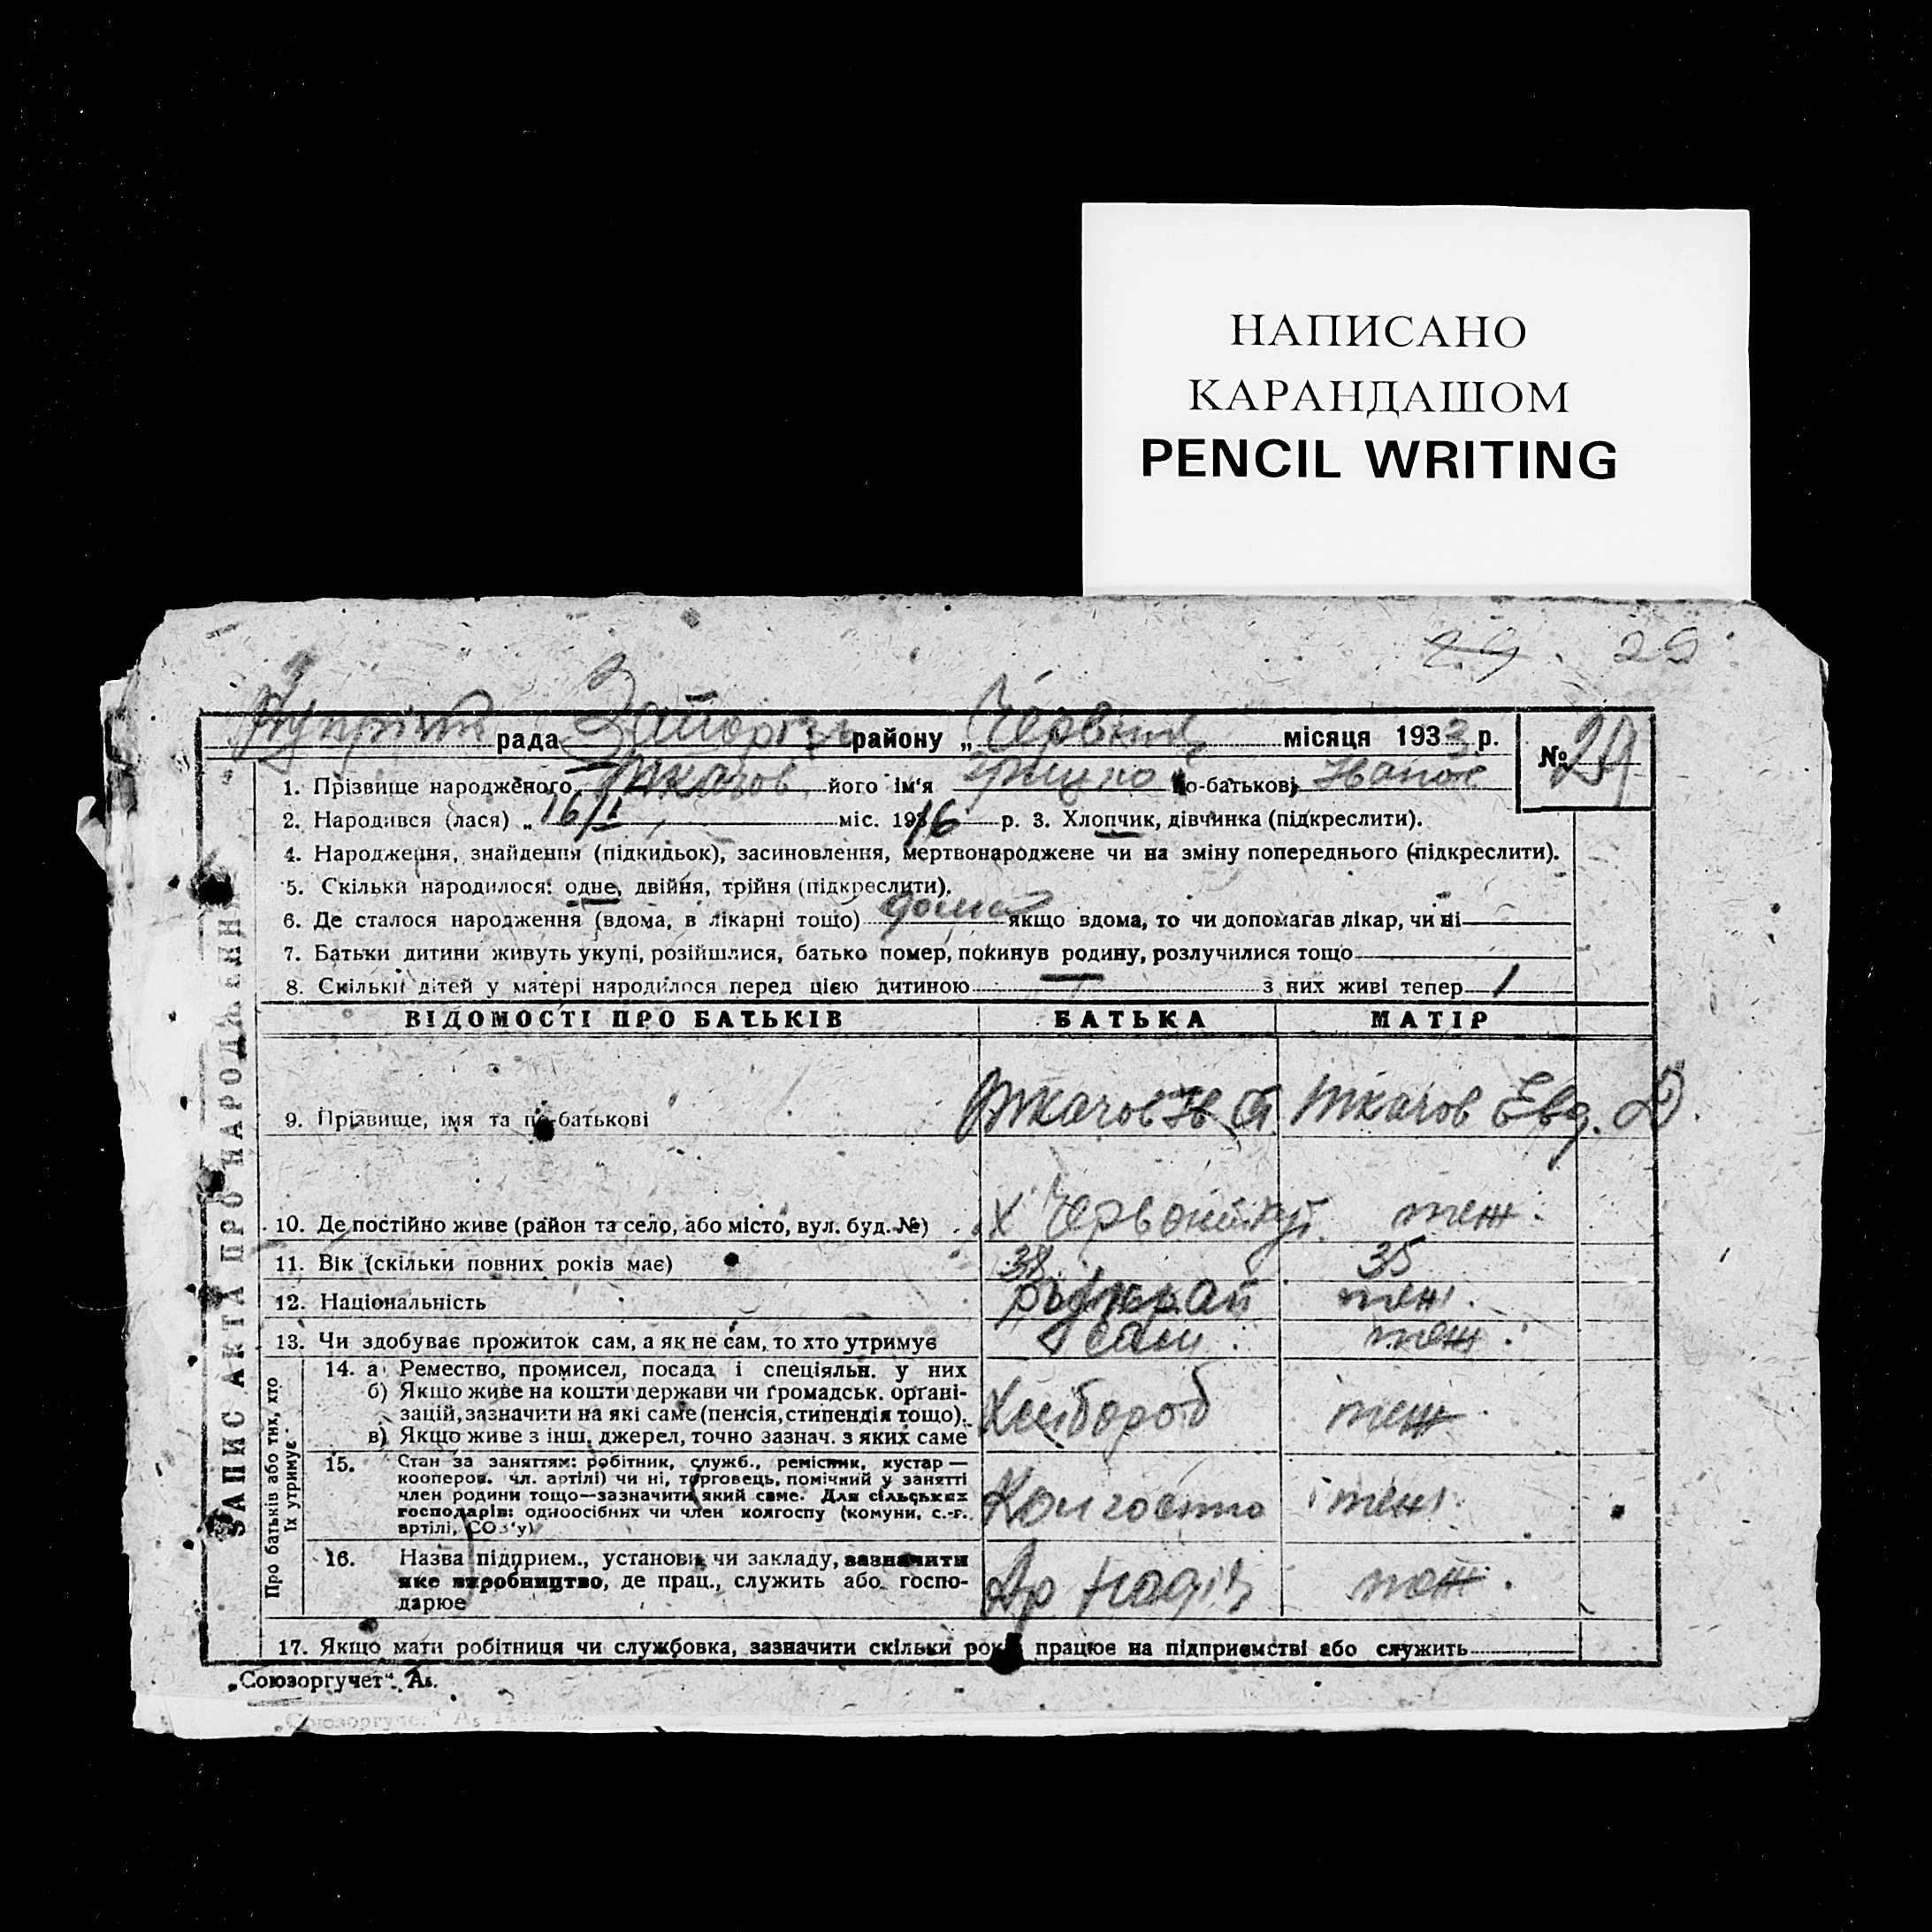 НАПИСАНО
КАРАНДАШОМ
PENCIL WRITING
29. 29
рада району „Червня місяця 1933 р. № 29
1. Прізвище народженого Ткачов його ім'я Грицко по-батькові Іванов
2. Народився (лася) „ 16/I міс. 1916 р. 3. Хлопчик, дівчинка (підкреслити).
4. Народження, знайдення (підкидьок), засиновлення, мертвонароджене чи на зміну попереднього (підкреслити).
5. Скільки народилося: одне, двійня, трійня (підкреслити).
6. Де сталося народження (вдома, в лікарні тощо) дома якщо вдома, то чи допомагав лікар, чи ні
7. Батьки дитини живуть укупі, розійшлися, батько помер, покинув родину, розлучилися тощо
8. Скільки дітей у матері народилося перед цією дитиною — з них живі тепер 1
ЗАПИС АКТА ПРО НАРОДЖЕННЯ
ВІДОМОСТІ ПРО БАТЬКІВ БАТЬКА МАТІР
9. Прізвище, імя та по-батькові Ткачов Ів Ткачов Евд. Д.
10. Де постійно живе (район та село, або місто, вул. буд. №) х Червоний кут теж
11. Вік (скільки повних років має) 38 35
12. Національність теж
13. Чи здобуває прожиток сам, а як не сам, то хто утримує сам теж
Про батьків або тих, хто їх утримує
14. а) Ремество, промисел, посада і спеціяльн. у них
б) Якщо живе на кошти держави чи громадськ. органі-
зацій, зазначити на які саме (пенсія, стипендія тощо).
в) Якщо живе з інш. джерел, точно зазнач. з яких саме Хлібороб теж
15. Стан за заняттям: робітник, служб., ремісник, кустар—
кооперов. чл. артілі) чи ні, торговець, помічний у занятті
член родини тощо—зазначити який саме. Для сільських
господарів: одноосібних чи член колгоспу (комуни, с.-г.
артілі, СОЗ'у) теж
16. Назва підприєм., установи чи закладу, зазначити
яке виробництво, де прац., служить або госпо-
дарює теж
17. Якщо мати робітниця чи службовка, зазначити скільки років працює на підприємстві або служить
„Союзоргучет".